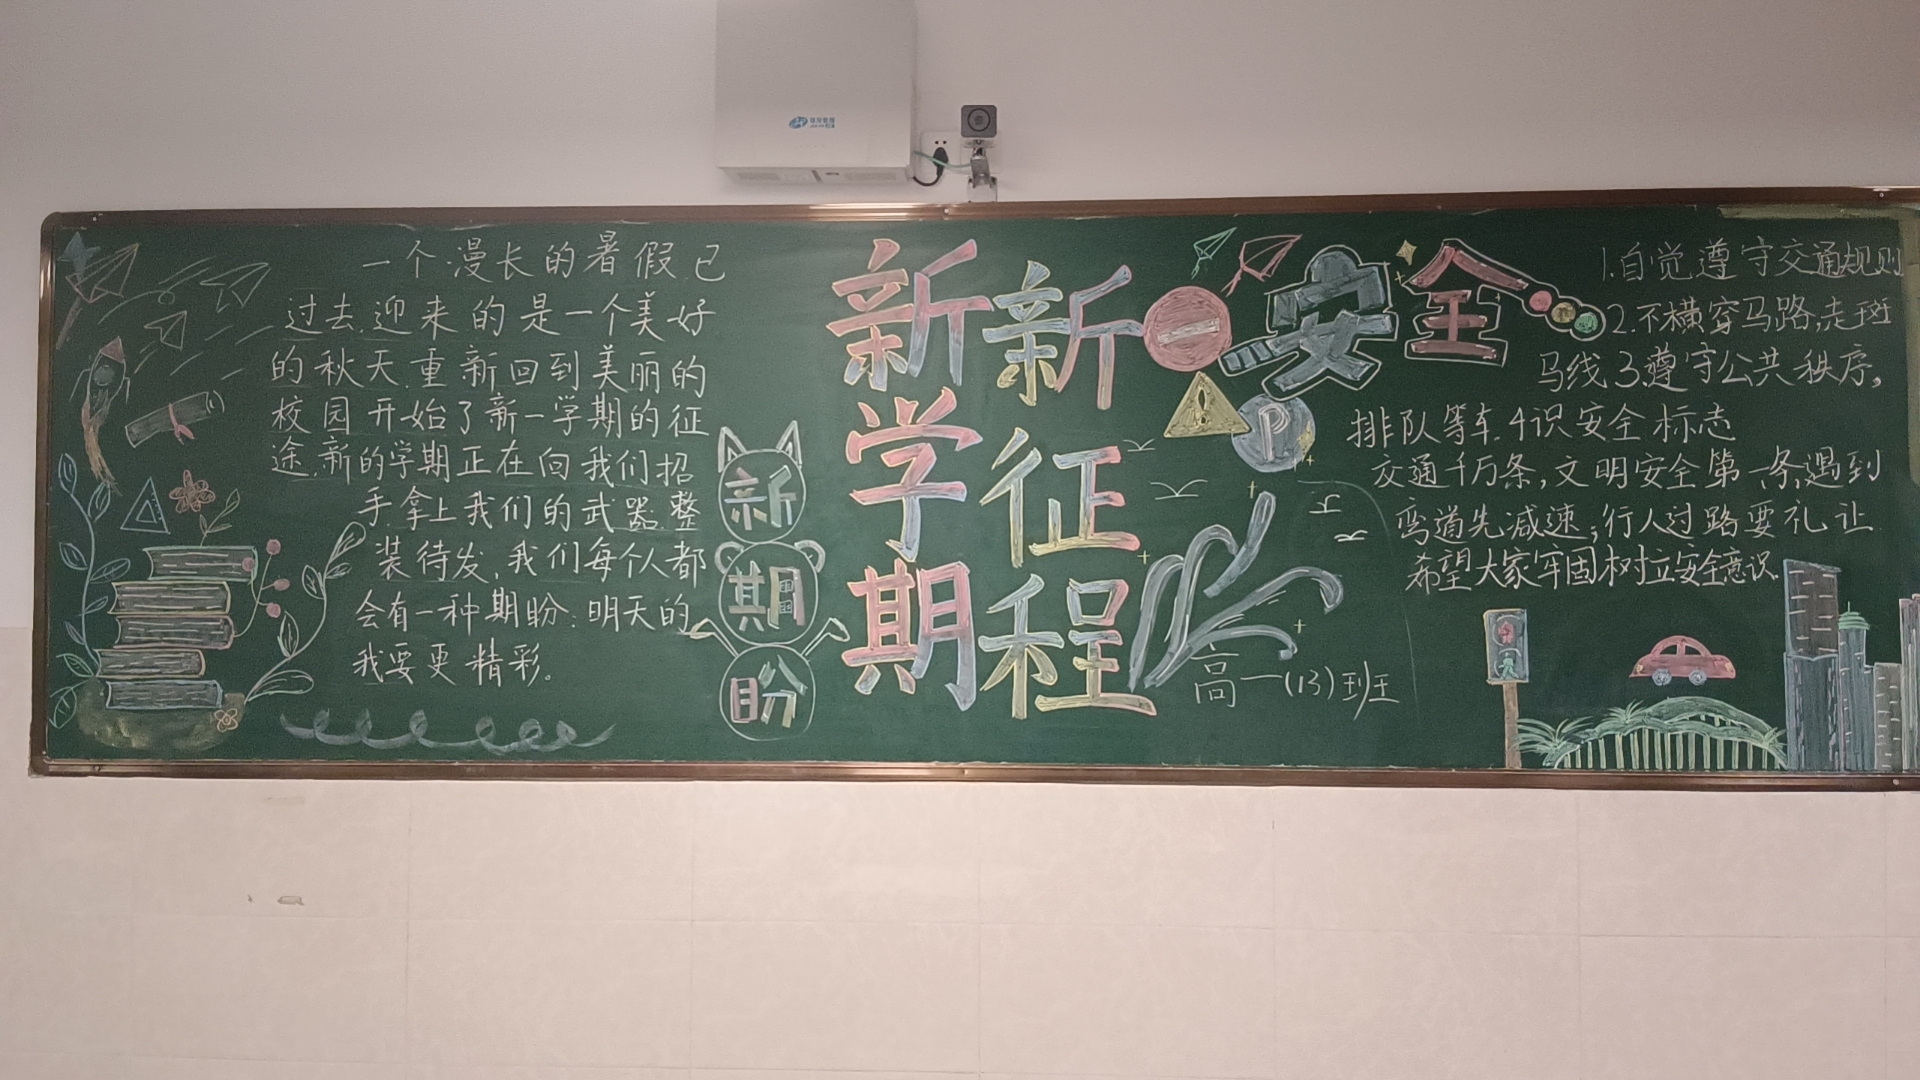 一个漫长的暑假已
过去,迎来的是一个美好
的秋天,重新回到美丽的
校园开始了新一学期的征
途,新的学期正在向我们招
手,拿上我们的武器,整
装待发,我们每个人都
会有一种期盼:明天的
我要更精彩。
新
期
盼
新学期
新征程
高一(13)班
P
安全
1.自觉遵守交通规则
2.不横穿马路,走斑
马线3.遵守公共秩序,
排队等车.4识安全标志
交通千万条,文明安全第一条,遇到
弯道先减速;行人过路要礼让
希望大家牢固树立安全意识.